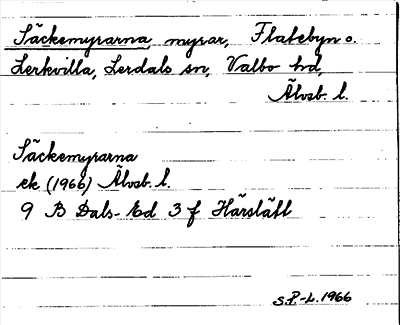 Säckemyrarna, myrar, Flatebyn o.
Lerkvilla, Lerdals sn, Valbo hd,
Älvsb. l.
Säckemyrarna
ek (1966) Älvsb. l.
9 B Dals-Ed 3 f Härslätt
S.P.-L. 1966